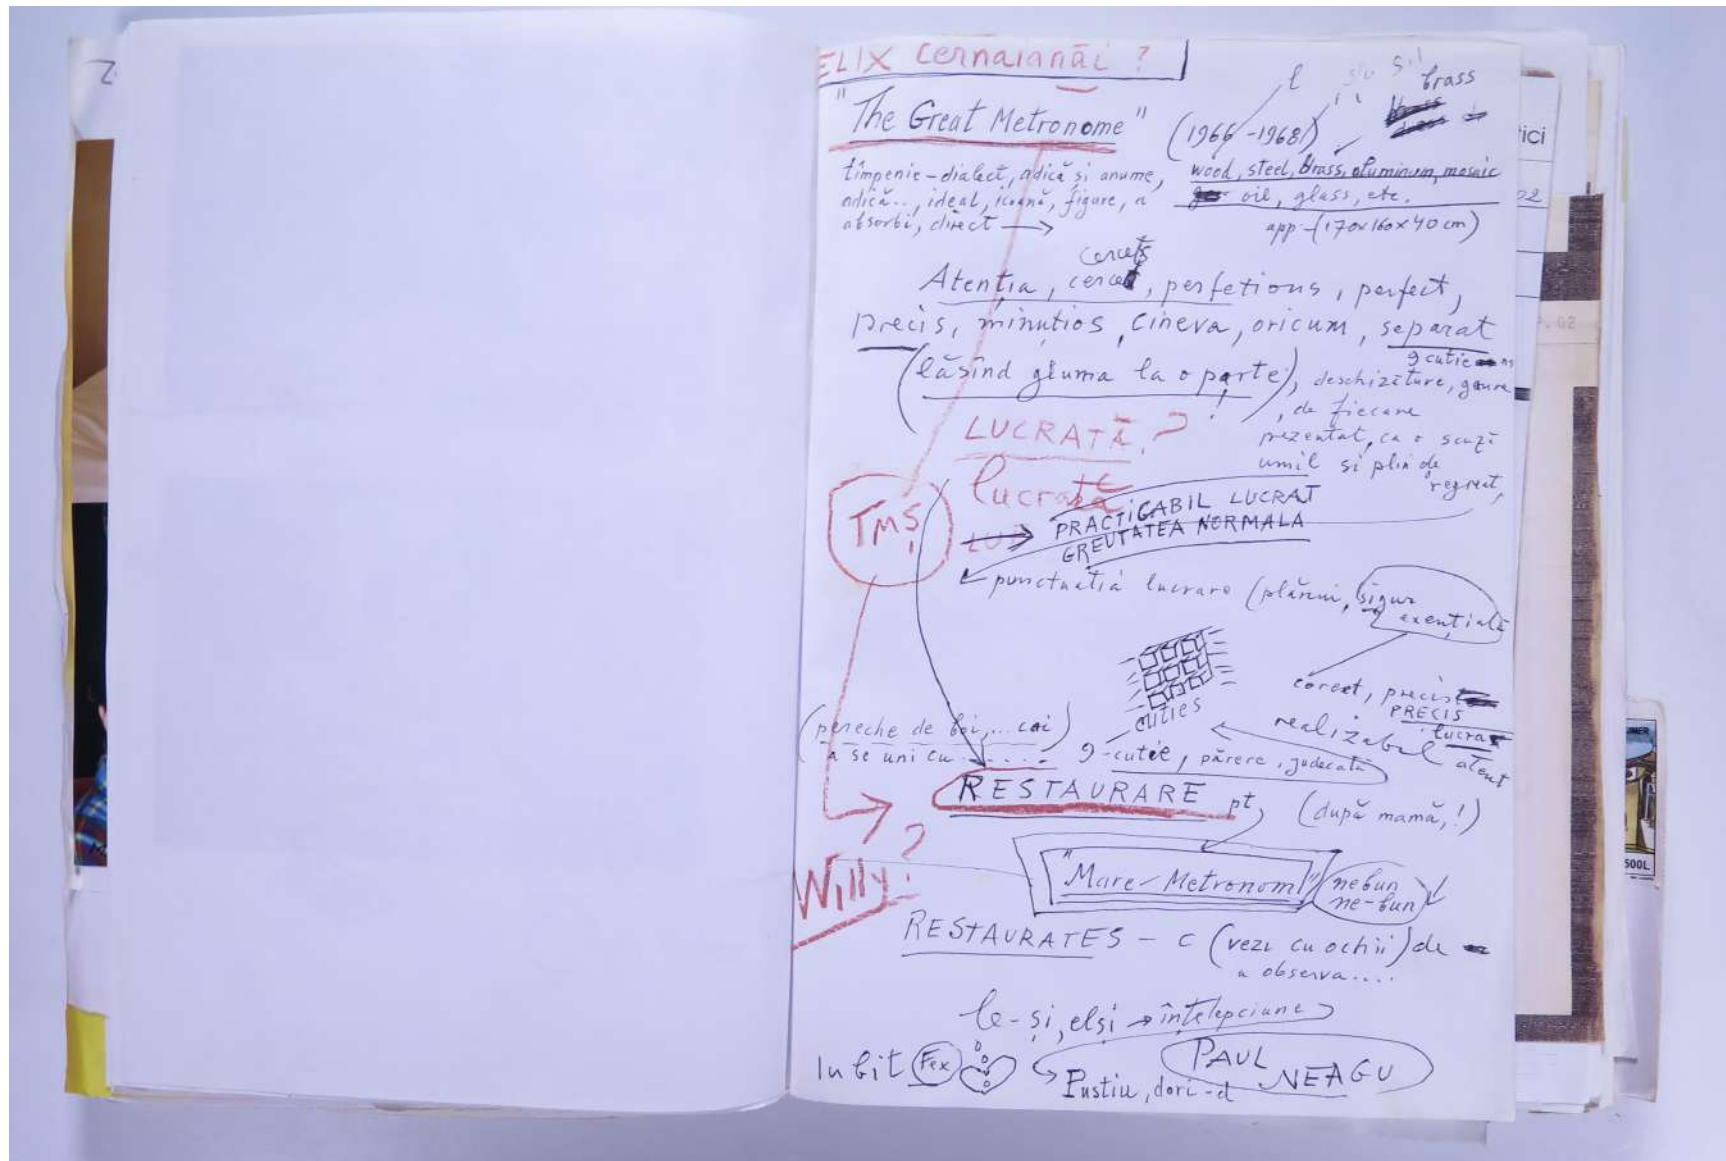 ELIX Cernaianăi ?
brass
"The Great Metronome"
(1966-1968)
timpenie-dialect, adică și anume,
adică.., ideal, icoană, figure, a
absorbi, direct
wood, steel, brass, aluminum, mosaic
oil, glass, etc.
app-(170x160x40 cm)
cercetș
Atenția, cercet, perfetions, perfect,
precis, minuțios, cineva, oricum, separat
9 cutie
(lăsînd gluma la o parte!), deschizăture, gaura
, de fiecare
prezentat, ca o scuză
umil si plin de
regreat,
LUCRATĂ ?
lucrată
TMȘ
PRACTICABIL LUCRAT
GREUTATEA NORMALA
punctuatiă lucrare (plăreni, sigur
exențială
corect, precis
PRECIS
lucrat
atent
realizabil
cuties
(pereche de boi,... cai)
a se uni cu......
9-cutie, părere, judecată
RESTAURARE pt,
(după mamă,!)
Willy?
"Mare-Metronom"
nebun
ne-bun
RESTAURATES - c (vezi cu ochii) de
a observa....
le-și, elși → înțelepciune
Iubit Fex
Pustiu, dori-d
PAUL
NEAGU
ici
02
P.02
500L